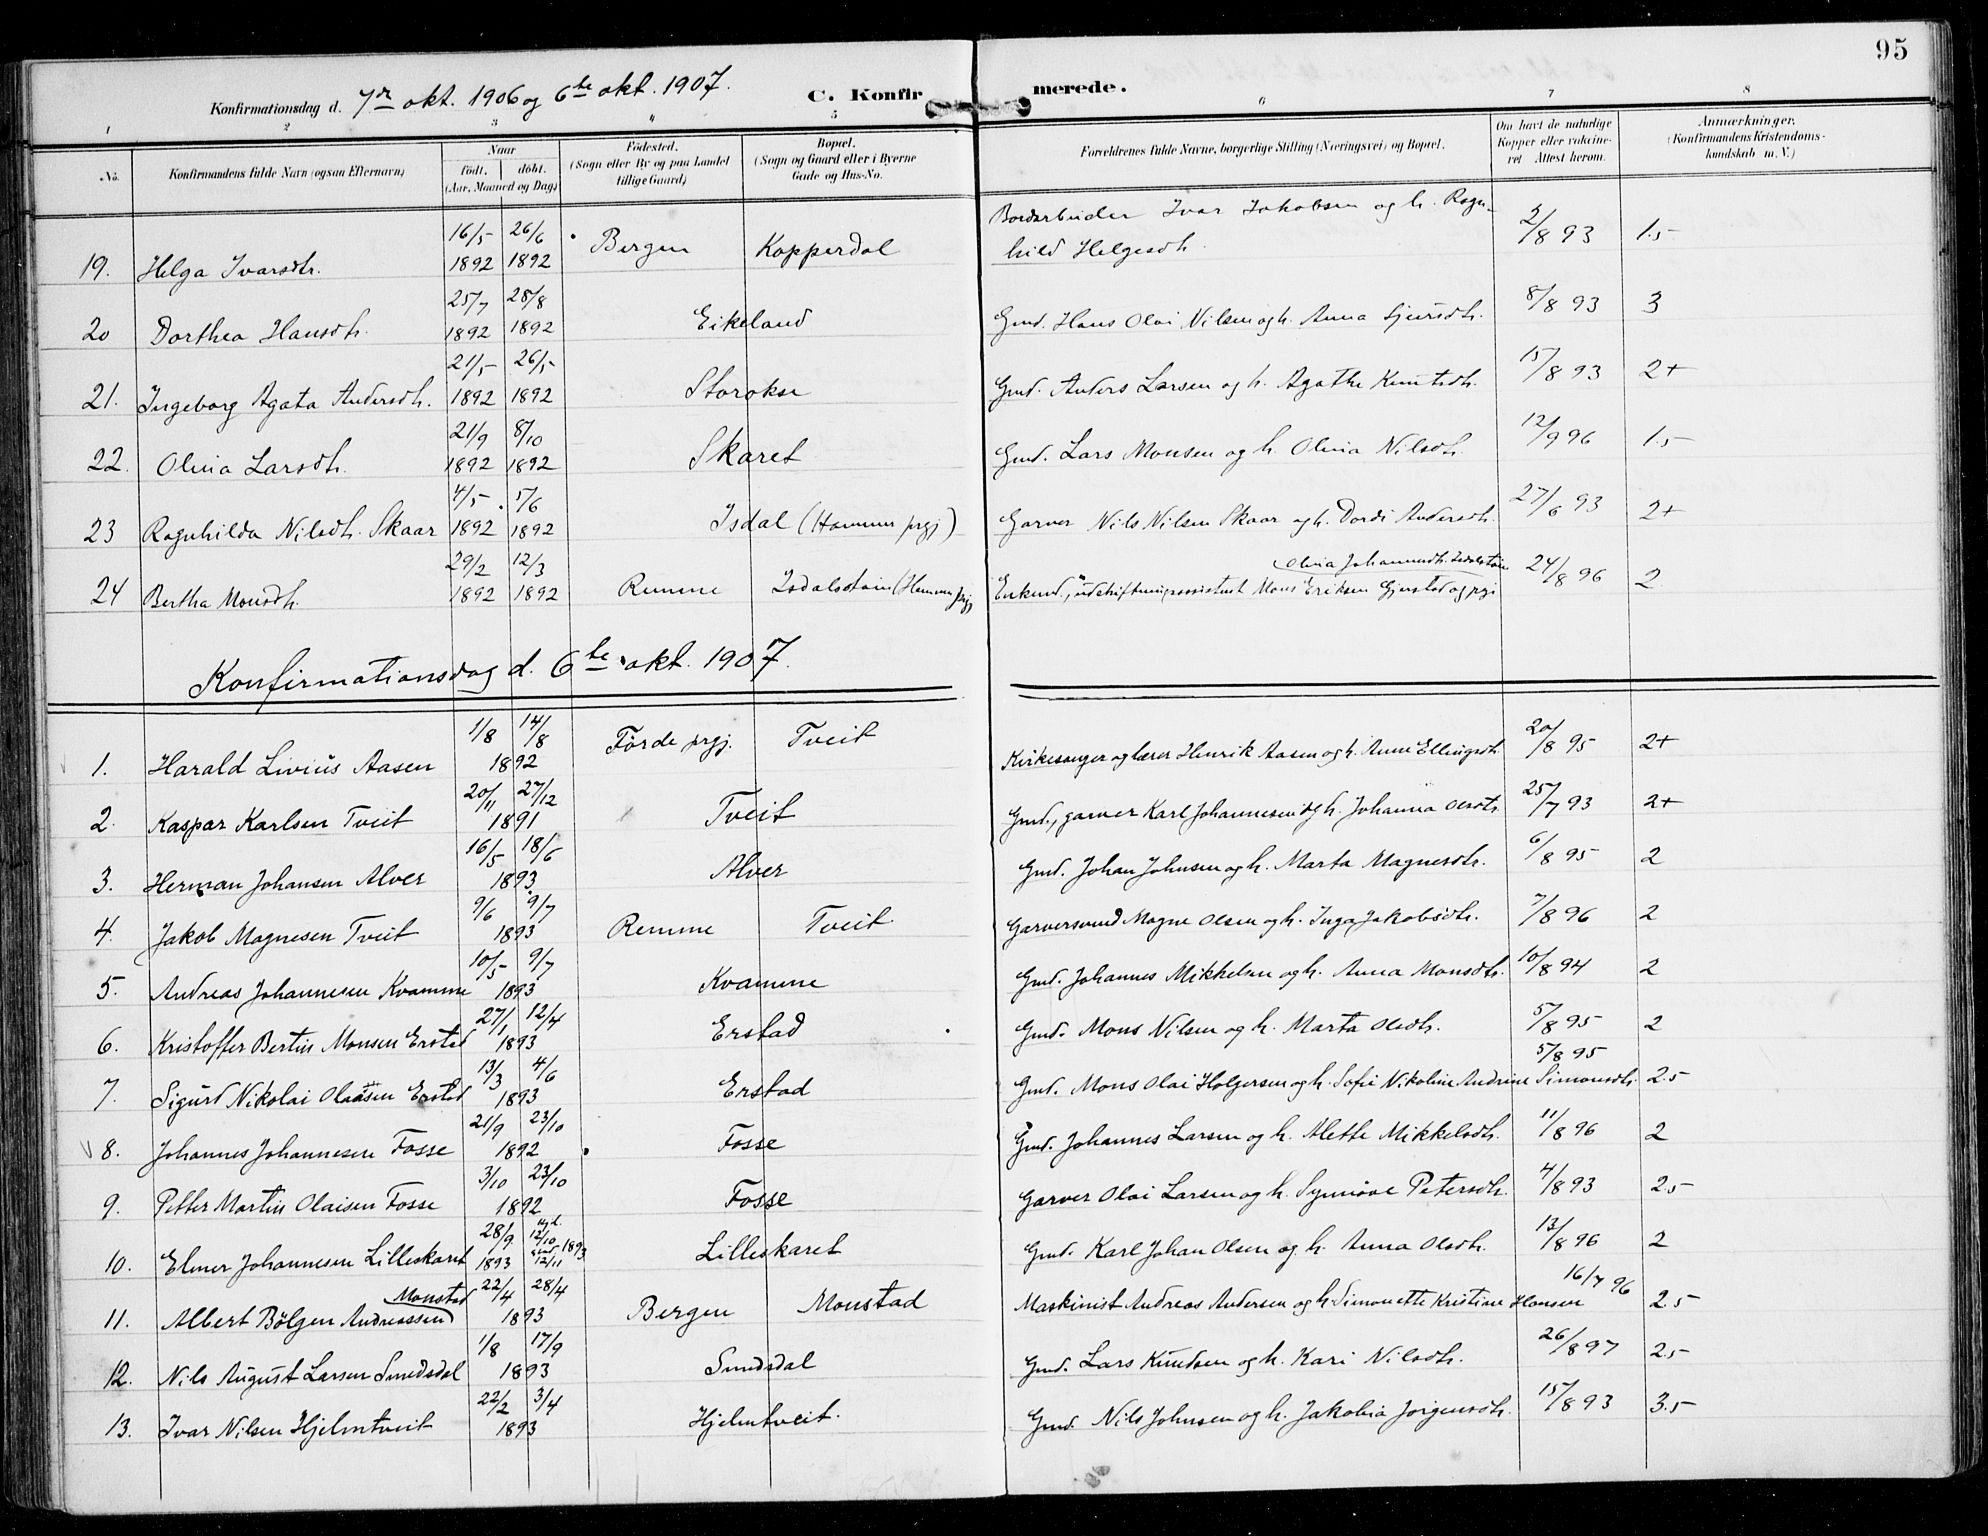 95
Konfirmationsdag d. 7de okt. 1906 og 6te okt. 1907. C. Konfirmerede.
1 2 3 4 5 6 7 8
No. Konfirmandens fulde Navn (ogsaa Efternavn) Naar født, døbt. (Aar, Maaned og Dag) Fødested. (Sogn eller By og paa Landet tillige Gaard) Bopæl. (Sogn og Gaard eller i Byerne Gade og Hus-No. Forældrenes fulde Navne, borgerlige Stilling (Næringsvei) og Bopæl. Om havt de naturlige Kopper eller vakcineret. Attest herom. Anmærkninger. (Konfirmandens Kristendomskundskab m. V.)
19. Helga Ivarsdtr. 16/5 1892 26/6 1892 Bergen Kopperdal Bordarbeider Ivar Jakobsen og h. Ragnhild Helgesdtr. 2/8 93 1.5
20 Dorthea Hansdtr. 25/7 1892 28/8 1892 Eikeland Gmd. Hans Olai Nilsen og h. Anna Sjursdtr. 8/8 93 3
21. Ingeborg Agata Andersdtr. 21/5 1892 26/5 1892 Storokse Gmd. Anders Larsen og h. Agathe Knutsdtr. 15/8 93 2+
22. Olina Larsdtr. 21/9 1892 8/10 1892 Skaret Gmd. Lars Monsen og h. Olina Nilsdtr. 12/9 96 1.5
23 Ragnhilda Nilsdtr. Skaar 4/5 1892 5/6 1892 Isdal (Hammer prgj) Garver Nils Nilsen Skaar og h. Dordi Andersdtr. 27/6 93 2+
24 Bertha Monsdtr. 29/2 1892 12/3 1892 Remme Isdalstøin (Hammer prgj) Enkemd., udskiftningsassistent Mons Eriksen Gjerstad og pige Olina Johannesdtr. Isdalstøin 24/8 96 2
Konfirmationsdag d. 6te okt. 1907.
1. Harald Livius Aasen 1/8 14/8 1892 Førde prgj. Tveit Kirkesanger og lærer Henrik Aasen og h. Anne Ellingsdtr. 20/8 95 2+
2. Kaspar Karlsen Tveit 20/11 27/12 1891 Tveit Gmd., garver Karl Johannesen og h. Johanna Olsdtr. 25/7 93 2+
3. Herman Johansen Alver 16/5 18/6 1893 Alver Gmd. Johan Johnsen og h. Marta Magnesdtr. 6/8 95 2
4. Jakob Magnesen Tveit 9/6 9/7 1893 Remme Tveit Garversvend Magne Olsen og h. Inga Jakobsdtr. 7/8 96 2
5. Andreas Johannesen Kvamme 10/5 9/7 1893 Kvamme Gmd. Johannes Mikkelsen og h. Anna Monsdtr. 10/8 94 2
6. Kristoffer Bertin Monsen Erstad 27/1 12/4 1893 Erstad Gmd. Mons Nilsen og h. Marta Olsdtr. 5/8 95 2
7. Sigurd Nikolai Olaisen Erstad 13/3 4/6 1893 Erstad Gmd. Mons Olai Holgersen og h. Sofi Nikoline Andrine Simonsdtr. 5/8 95 2.5
8. Johannes Johannesen Fosse 21/9 23/10 1892 Fosse Gmd. Johannes Larsen og h. Alette Mikkelsdtr. 11/8 96 2
9. Petter Martin Olaisen Fosse 3/10 23/10 1892 Fosse Garver Olai Larsen og h. Synnøve Petersdtr. 4/8 93 2.5
10. Elmer Johannesen Lilleskaret 28/9 1893 12/10 12/11 1893 Lilleskaret Gmd. Karl Johan Olsen og h. Anna Olsdtr. 13/8 96 2
11. Albert Bølgen Andreassen Monstad 22/4 28/4 1893 Bergen Monstad Maskinist Andreas Andersen og h. Simonette Kristine Hansen 16/7 96 2.5
12. Nils August Larsen Smedsdal 1/8 17/9 1893 Smedsdal Gmd. Lars Knudsen og h. Kari Nilsdtr. 26/8 97 2.5
13. Ivar Nilsen Hjelmtveit 22/2 3/4 1893 Hjelmtveit. Gmd. Nils Johnsen og h. Jakobia Jørgensdtr. 15/8 93 3.5